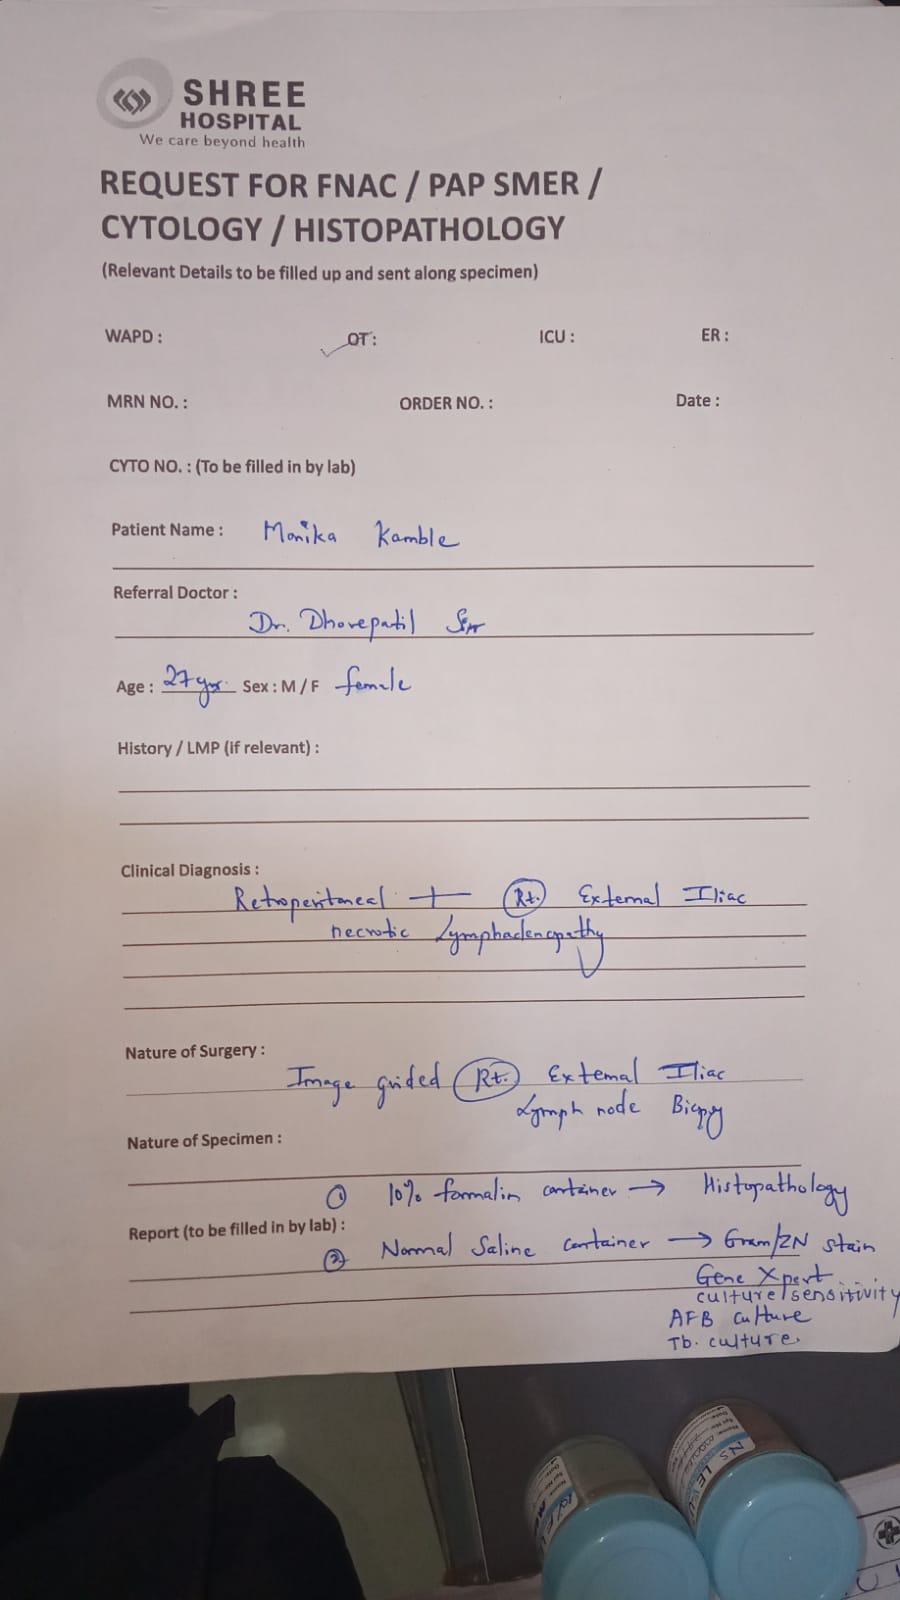 SHREE
HOSPITAL
We care beyond health
REQUEST FOR FNAC / PAP SMER /
CYTOLOGY / HISTOPATHOLOGY
(Relevant Details to be filled up and sent along specimen)
WAPD : OT : ICU : ER :
MRN NO. : ORDER NO. : Date :
CYTO NO. : (To be filled in by lab)
Patient Name : Monika Kamble
Referral Doctor :
Dr. Dhorepatil Sir
Age : 27 yrs. Sex : M / F female
History / LMP (if relevant) :
Clinical Diagnosis :
Retroperitoneal + Rt. External Iliac
necrotic Lymphadenopathy
Nature of Surgery :
Image guided Rt. External Iliac
Lymph node Biopsy
Nature of Specimen :
① 10% formalin container → Histopathology
Report (to be filled in by lab) :
② Normal Saline container → Gram/ZN stain
Gene Xpert
culture/sensitivity
AFB culture
Tb. culture.
NS